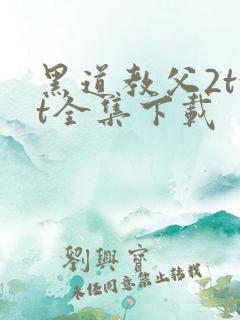 黑道教父2t
t全集下载
劉興寶
未经同意禁止转载